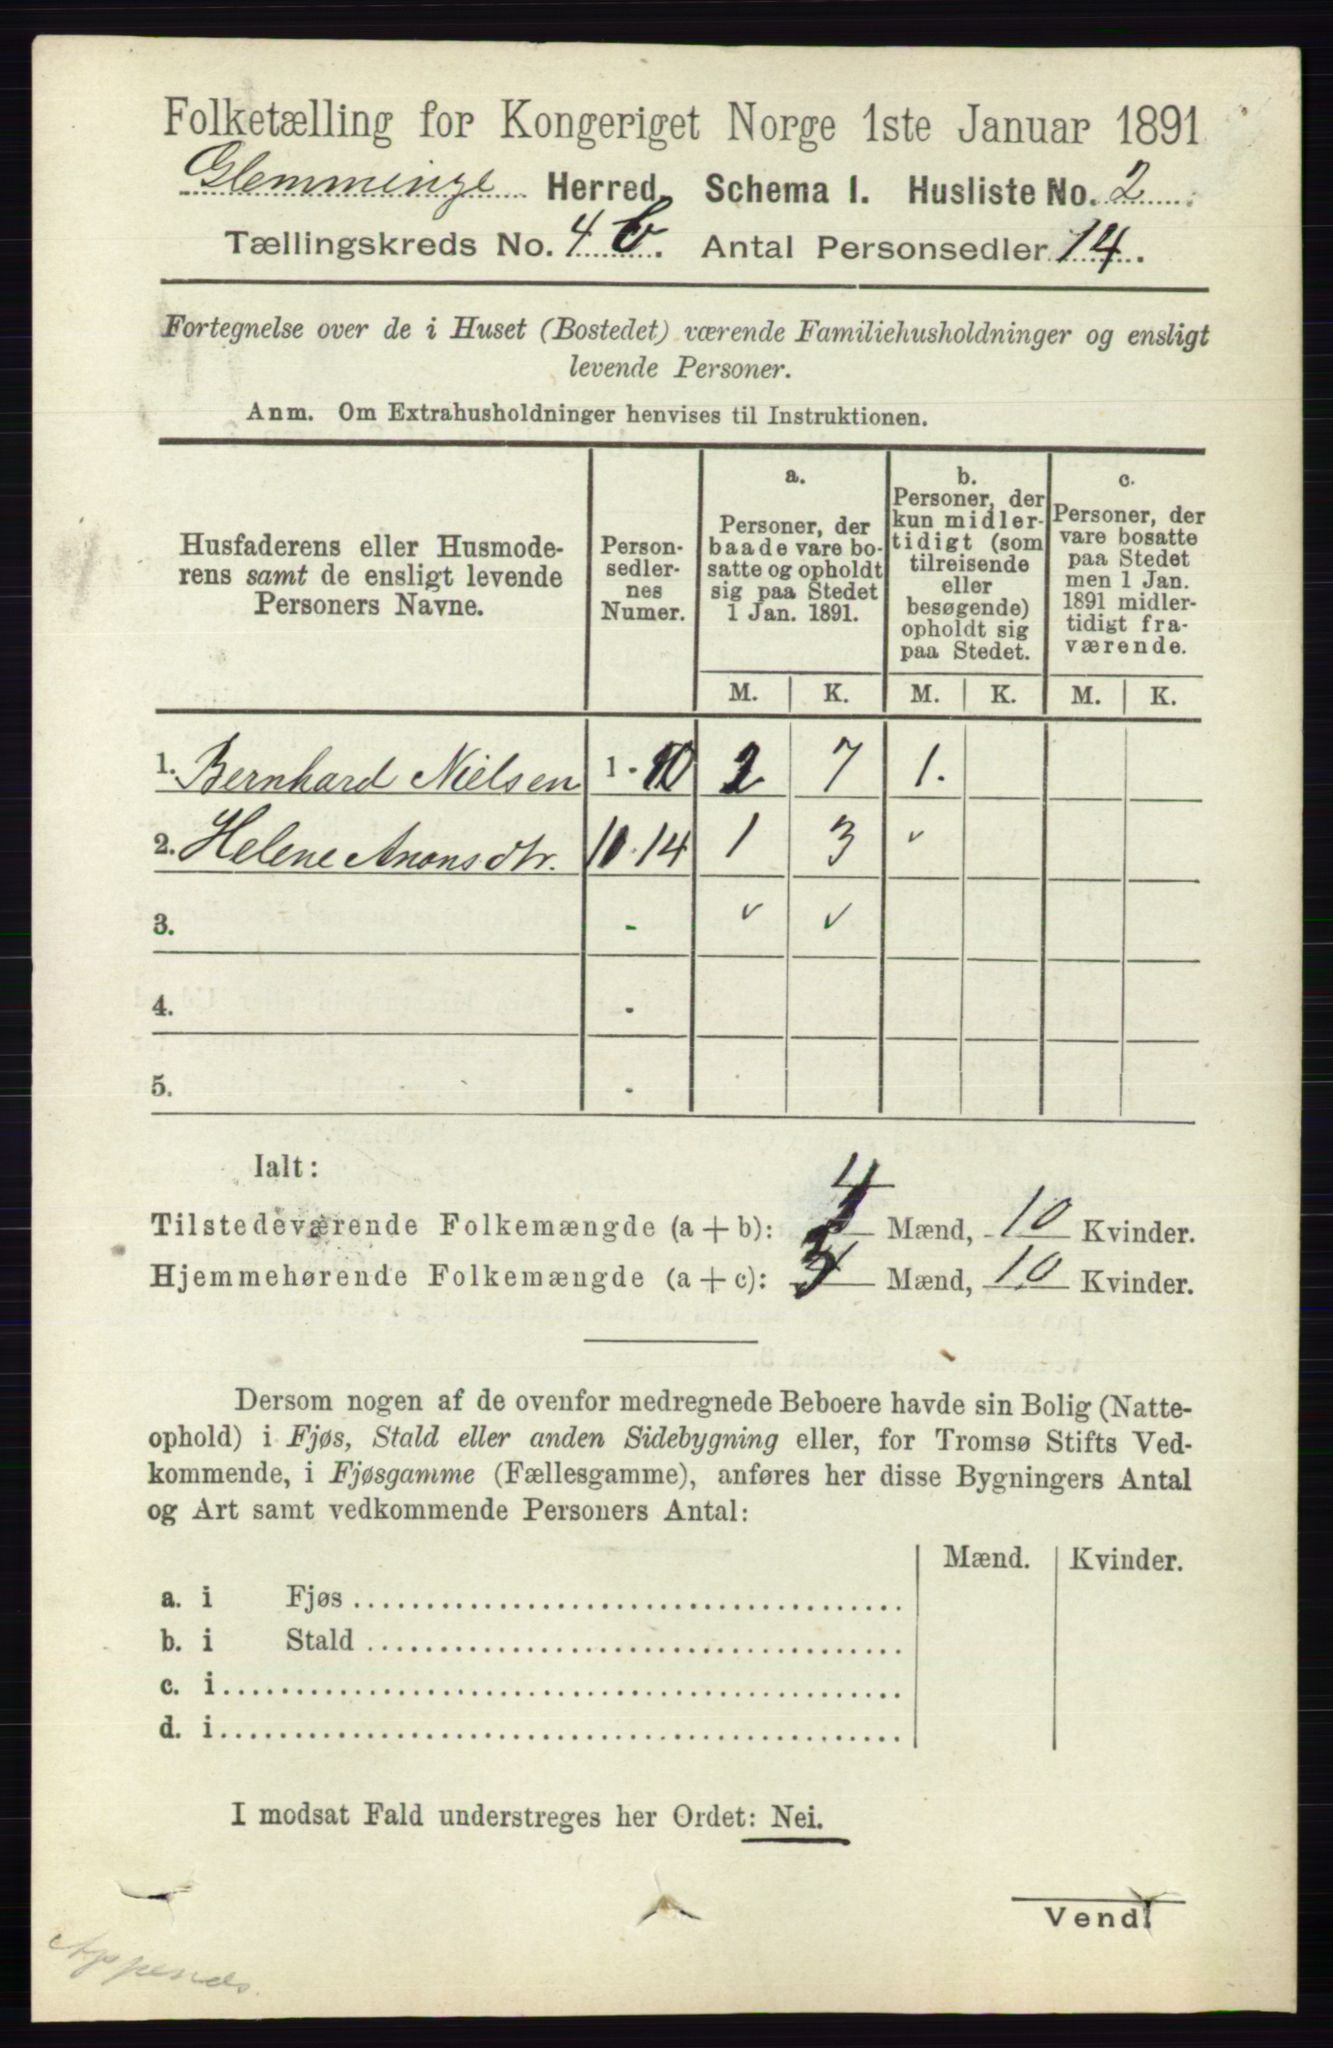 Folketælling for Kongeriget Norge 1ste Januar 1891
Glemminge Herred. Schema I. Husliste No. 2
Tællingskreds No. 4 b. Antal Personsedler 14.
Fortegnelse over de i Huset (Bostedet) værende Familiehusholdninger og ensligt
levende Personer.
Anm. Om Extrahusholdninger henvises til Instruktionen.
Husfaderens eller Husmode-
rens samt de ensligt levende
Personers Navne.
Person-
sedler-
nes
Numer.
a.
Personer, der
baade vare bo-
satte og opholdt
sig paa Stedet
1 Jan. 1891.
b.
Personer, der
kun midler-
tidigt (som
tilreisende
eller
besøgende)
opholdt sig
paa Stedet.
c.
Personer, der
vare bosatte
paa Stedet
men 1 Jan.
1891 midler-
tidigt fra-
værende.
M. K. M. K. M. K.
1. Bernhard Nielsen 1 - 10 2 7 1.
2. Helene Anonsdtr. 14 1 3 ✓
3. - ✓ ✓
4. -
5. -
Ialt:
Tilstedeværende Folkemængde (a + b): 4 Mænd, 10 Kvinder.
Hjemmehørende Folkemængde (a + c): 3 Mænd, 10 Kvinder.
Dersom nogen af de ovenfor medregnede Beboere havde sin Bolig (Natte-
ophold) i Fjøs, Stald eller anden Sidebygning eller, for Tromsø Stifts Ved-
kommende, i Fjøsgamme (Fællesgamme), anføres her disse Bygningers Antal
og Art samt vedkommende Personers Antal:
Mænd. Kvinder.
a. i Fjøs
b. i Stald
c. i
d. i
I modsat Fald understreges her Ordet: Nei.
Vend!